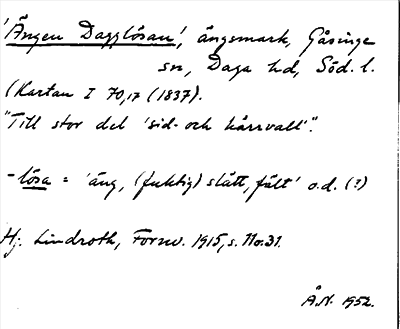 'Ängen Dagglösan', ängsmark, Gåsinge
sn, Daga hd, Söd. l.
(Kartan I 70,17 (1837).
"Till stor del 'sid- och kärrvall'".
-lösa = 'äng, (fuktig) slätt, fält' o.d. (?)
Hj. Lindroth, Fornv. 1915, s. No. 31.
Å.N. 1952.